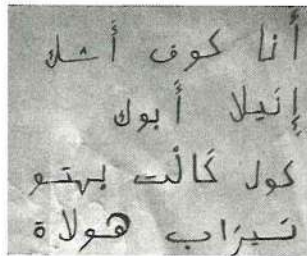 أنا كوف أشك
إنيلا أبوك
كول كَالْت بهتو
نسيرَاب هولاة